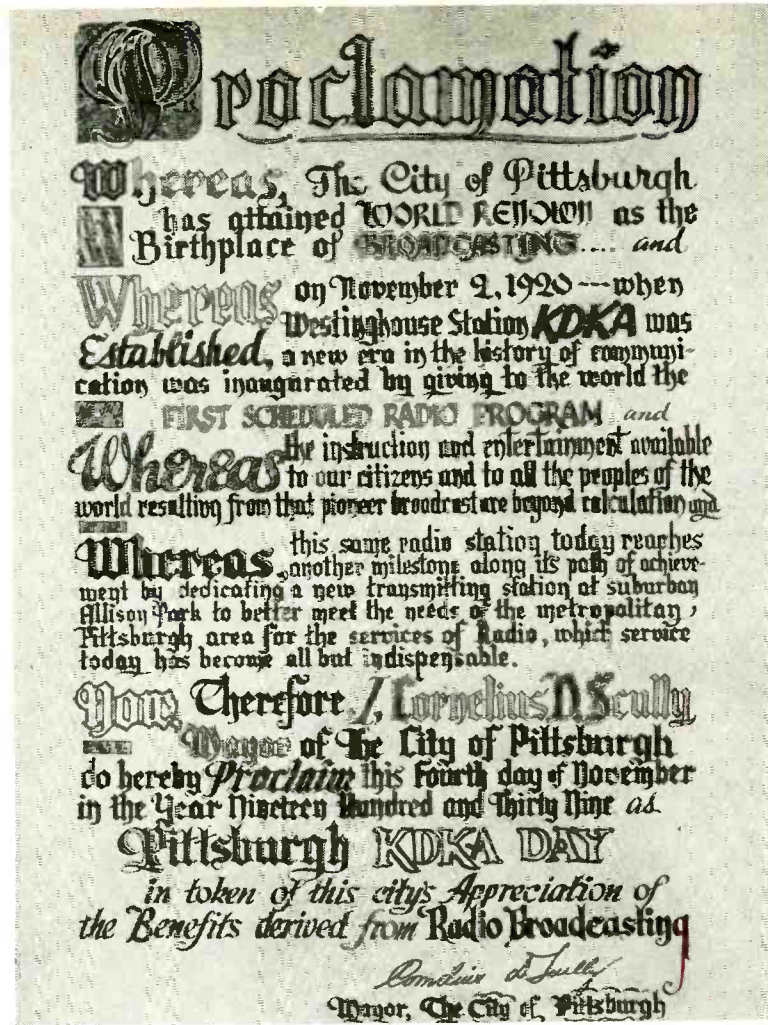 Proclamation
Whereas, The City of Pittsburgh
has attained WORLD RENOWN as the
Birthplace of BROADCASTING.... and
Whereas on November 2, 1920 --- when
Westinghouse Station KDKA was
Established, a new era in the history of communi-
cation was inaugurated by giving to the world the
FIRST SCHEDULED RADIO PROGRAM and
Whereas the instruction and entertainment available
to our citizens and to all the peoples of the
world resulting from that pioneer broadcast are beyond calculation and
Whereas this same radio station today reaches
another milestone along its path of achieve-
ment by dedicating a new transmitting station at suburban
Allison Park to better meet the needs of the metropolitan,
Pittsburgh area for the services of Radio, which service
today has become all but indispensable.
Now, Therefore I, Cornelius D. Scully
Mayor of The City of Pittsburgh
do hereby Proclaim this Fourth day of November
in the Year Nineteen Hundred and Thirty Nine as
Pittsburgh KDKA DAY
in token of this city's Appreciation of
the Benefits derived from Radio Broadcasting
Cornelius D Scully
Mayor, The City of Pittsburgh